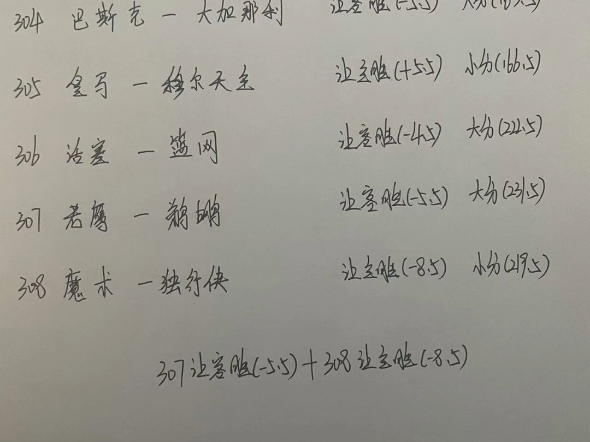 304 巴斯克 — 大加那利 让客胜(-5.5) 大分(167.5)
305 皇马 — 穆尔天主 让主胜(+5.5) 小分(166.5)
306 活塞 — 篮网 让客胜(-4.5) 大分(222.5)
307 老鹰 — 鹈鹕 让客胜(-5.5) 大分(231.5)
308 魔术 — 独行侠 让主胜(-8.5) 小分(219.5)
307让客胜(-5.5)+308让主胜(-8.5)